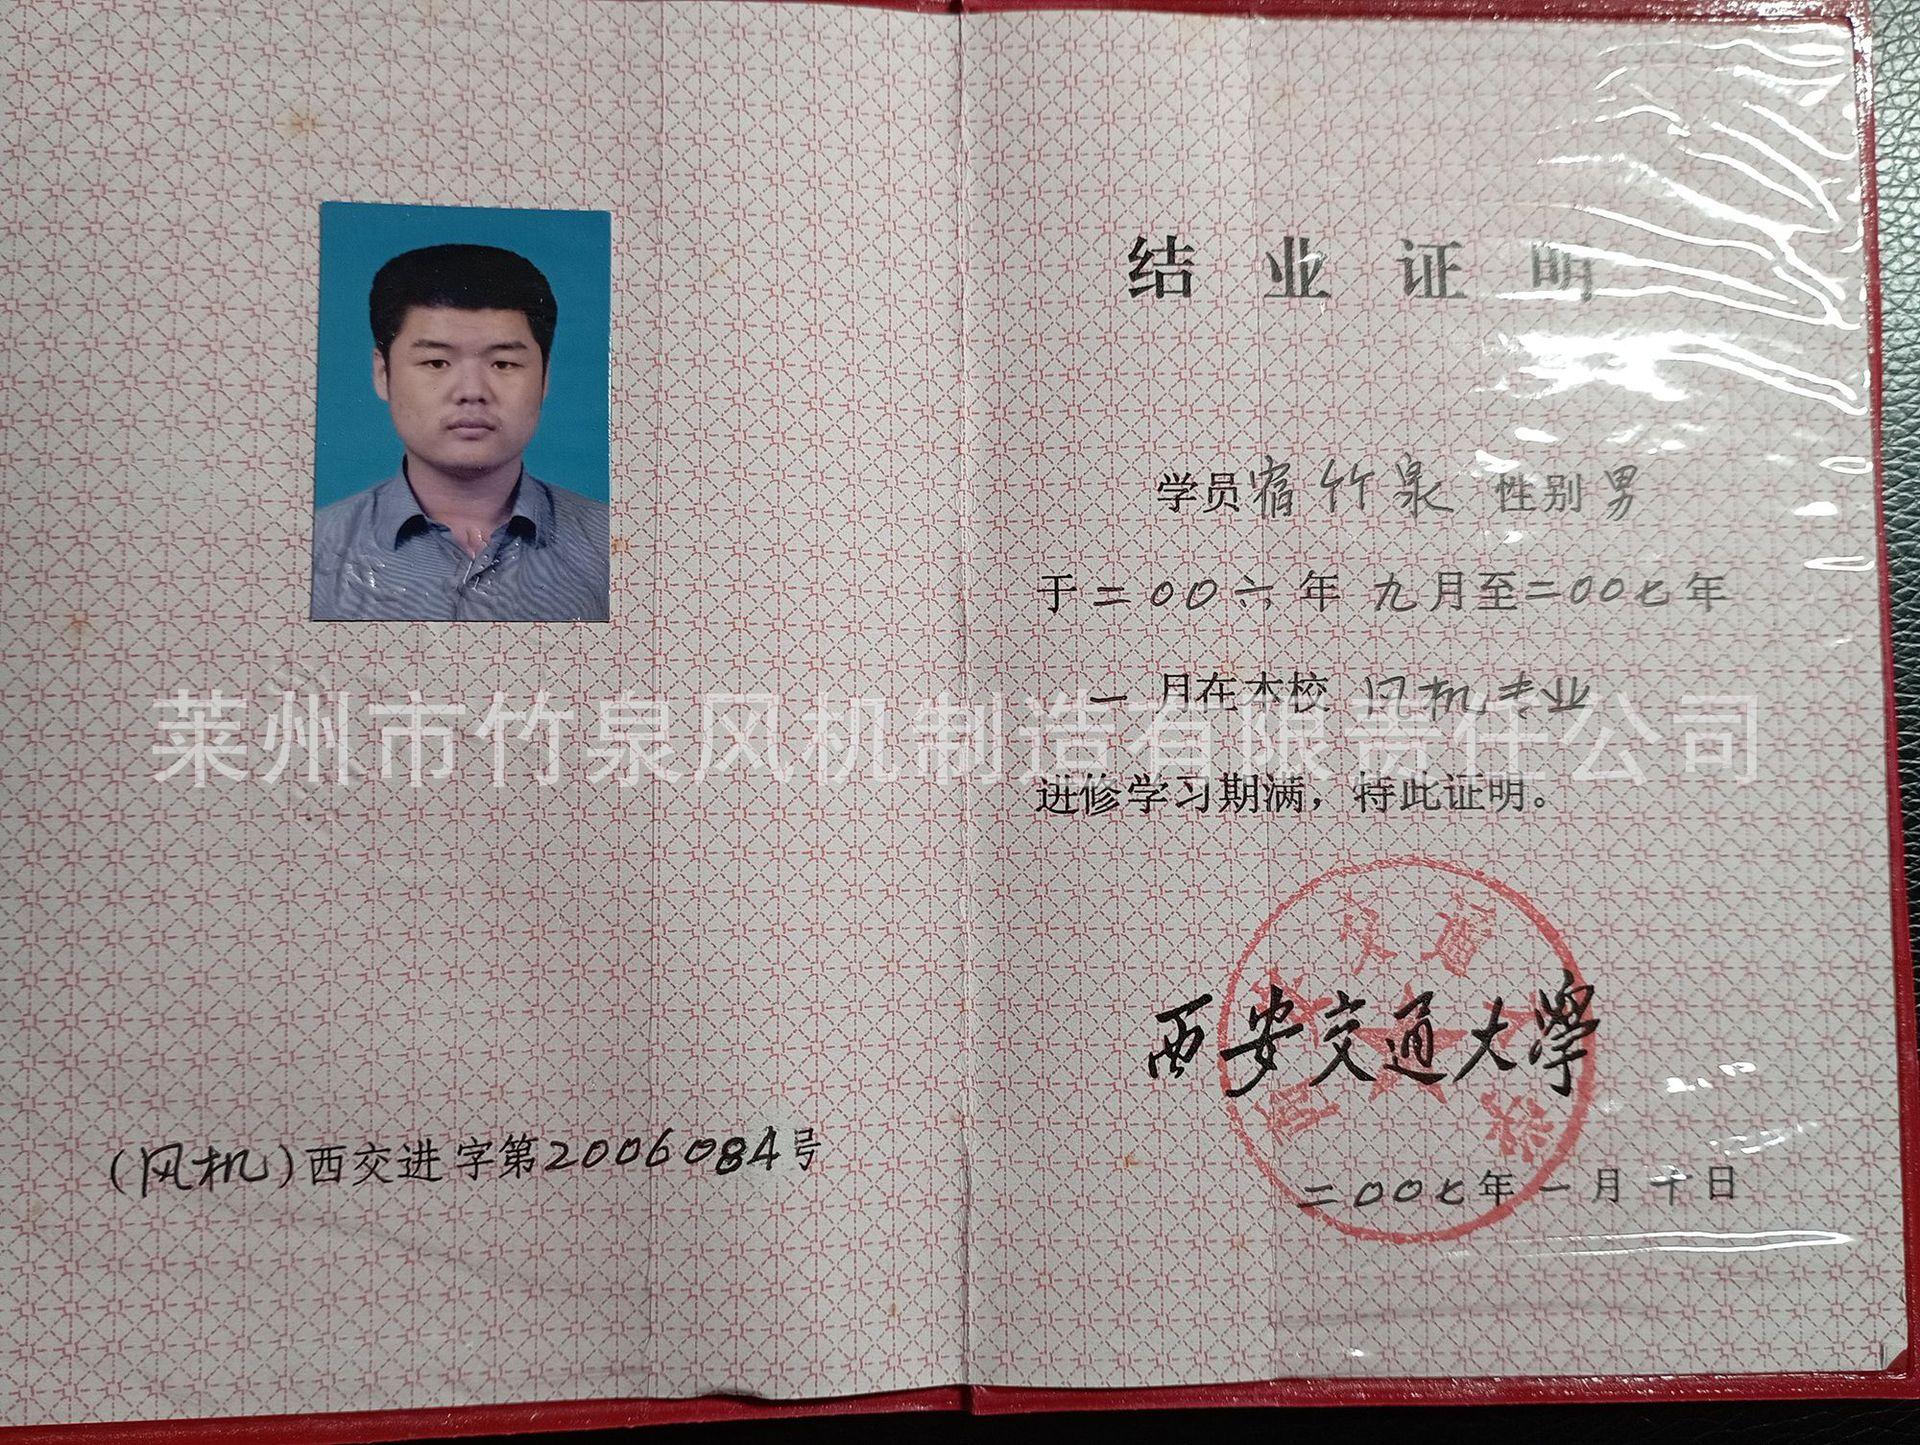 结业证明
学员宿竹泉 性别男
于二00六年 九月至二00七年
一月在本校 风机专业
进修学习期满，特此证明。
莱州市竹泉风机制造有限责任公司
西安交通大學
二00七年一月十日
(风机)西交进字第2006084号